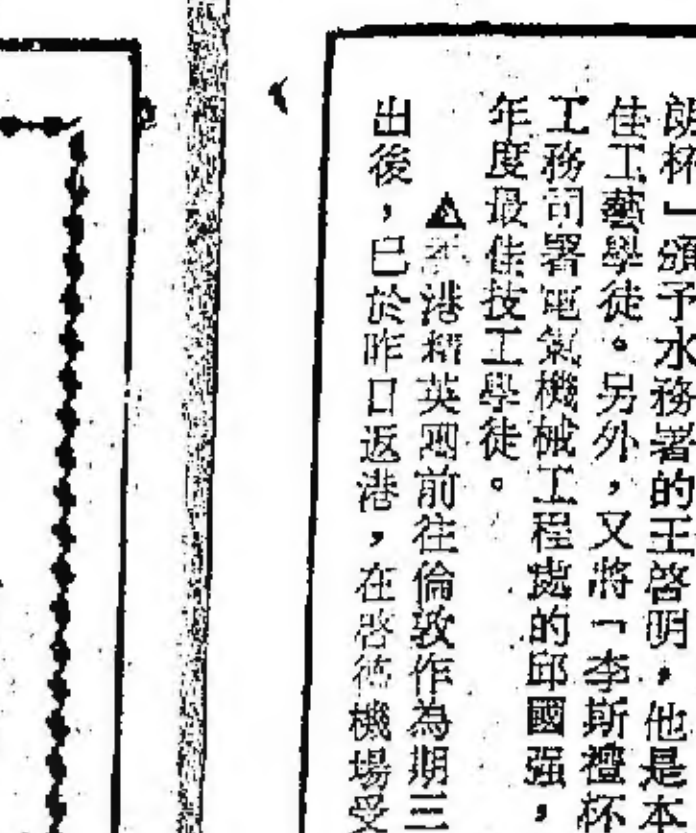 朗杯」頒予水務署的王啓明，他是本
佳工藝學徒。另外，又將「李斯禮杯
工務司署電氣機械工程處的邱國强，
年度最佳技工學徒。
▲港精英團前往倫敦作為期三
出後，已於昨日返港，在啓德機場受